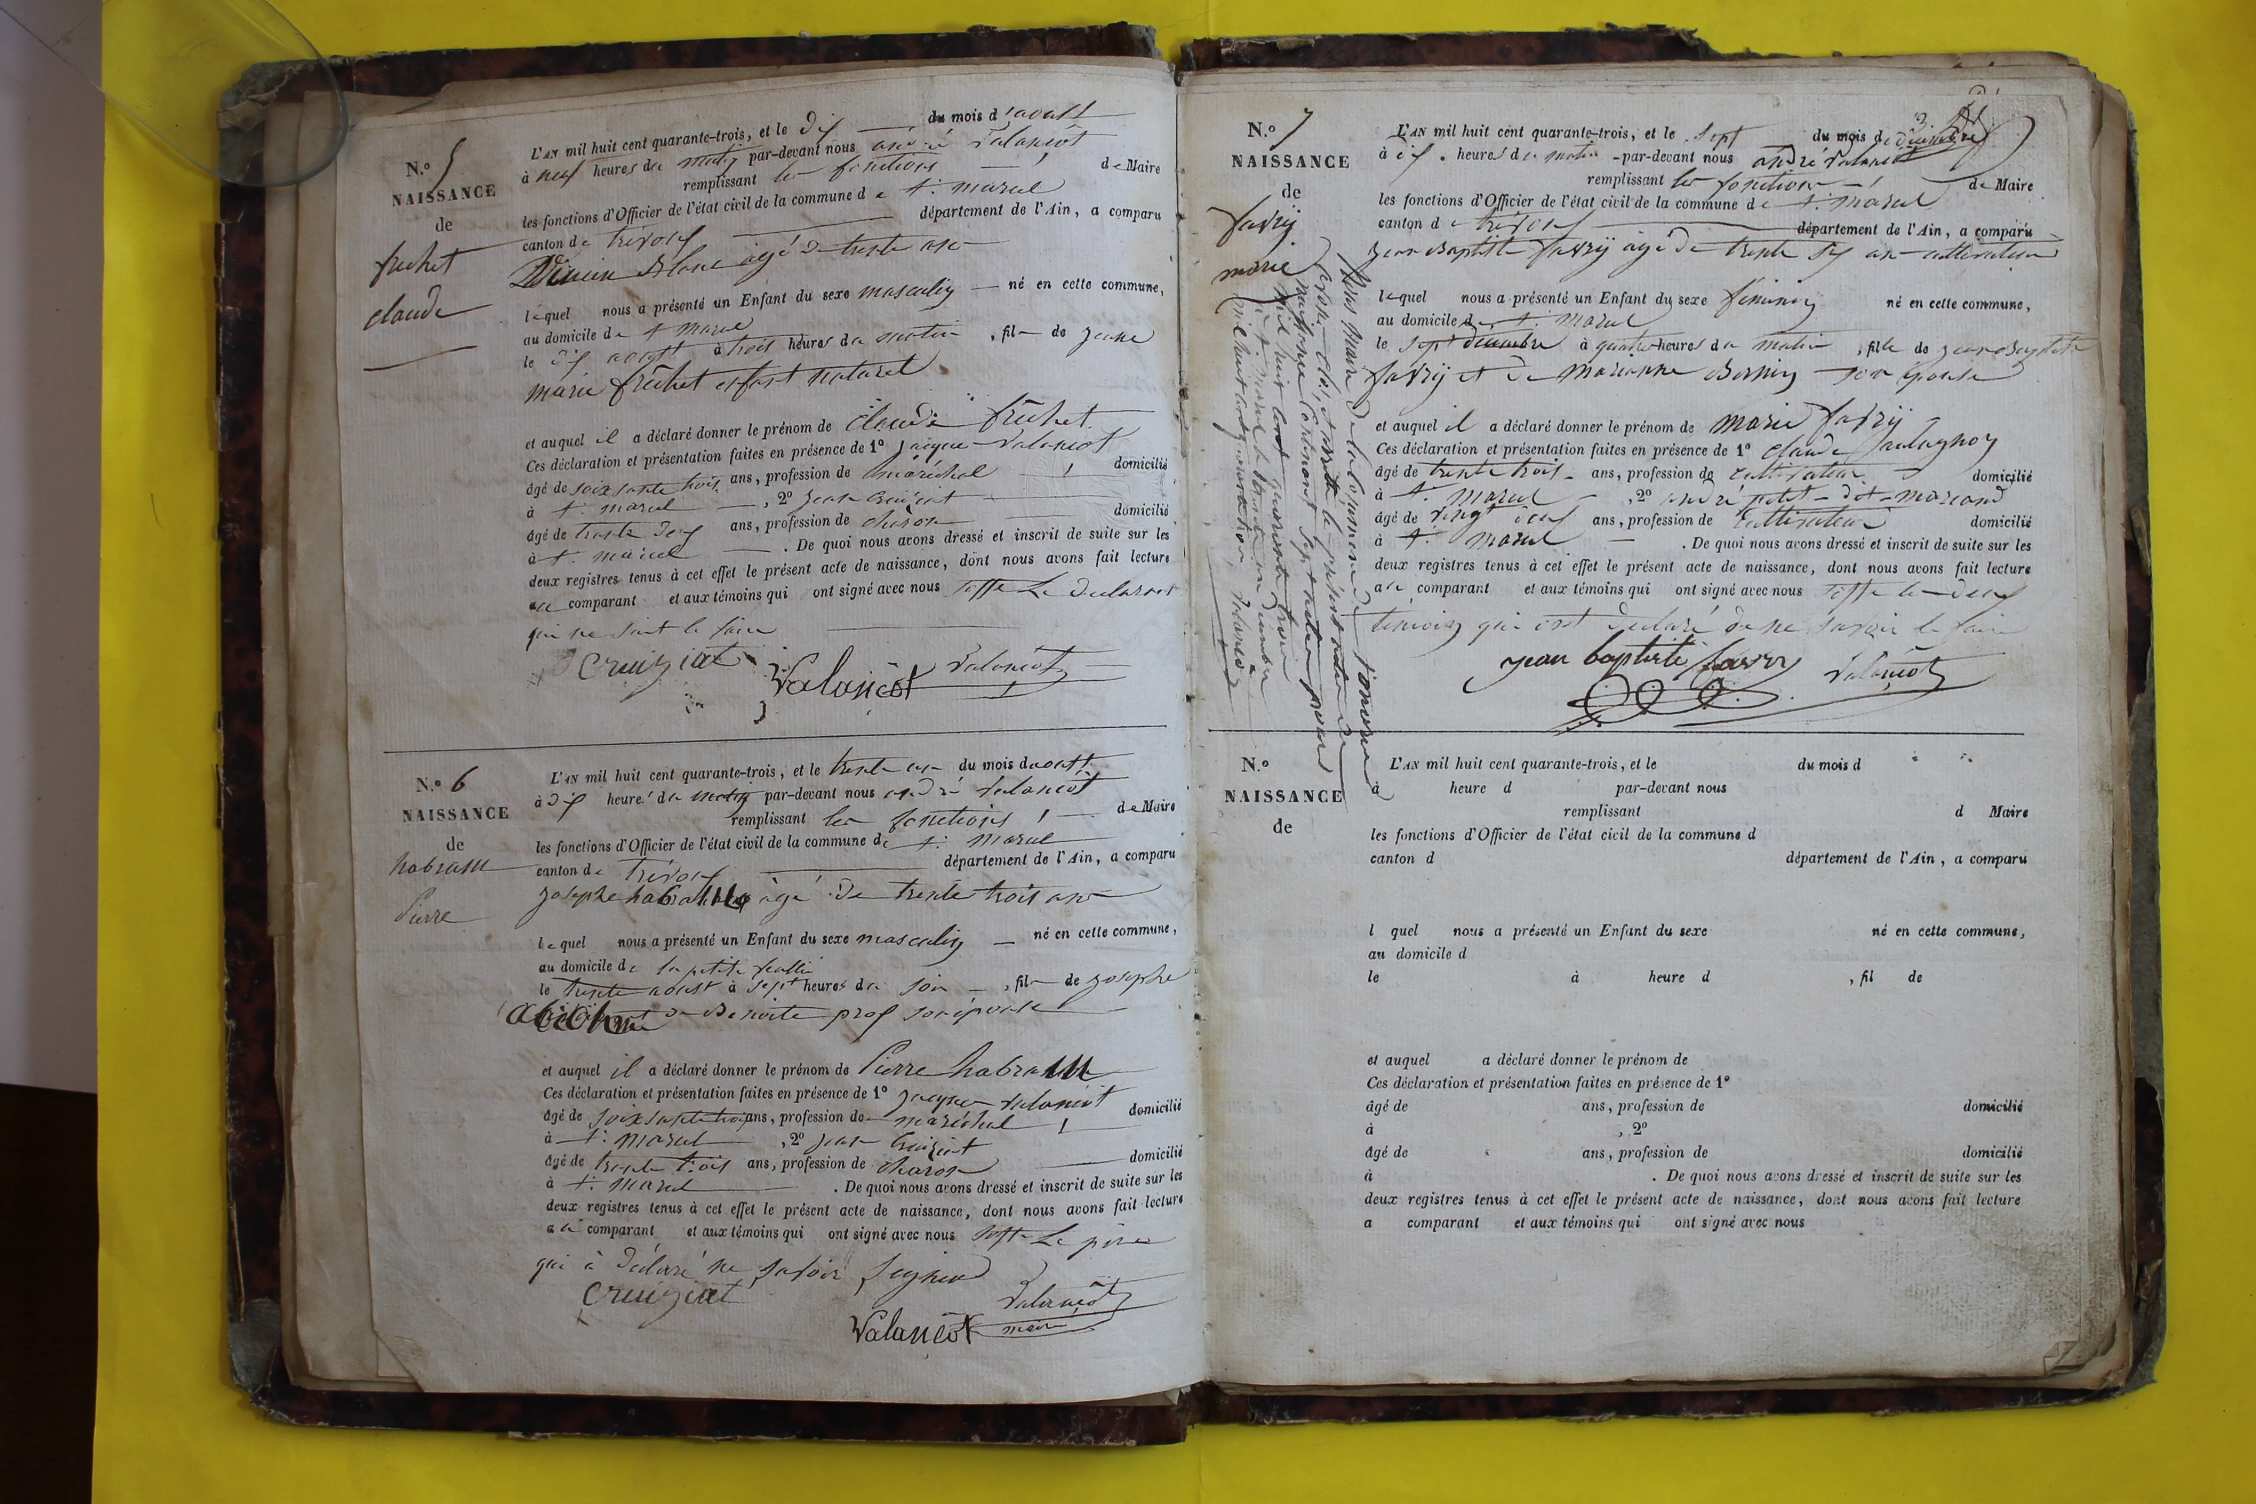 N.º 5
NAISSANCE
de
frechet
claude
L'AN mil huit cent quarante-trois, et le dix du mois d'aoust
à neuf heures du matin par-devant nous andré Valançot
remplissant les fonctions de Maire
les fonctions d'Officier de l'état civil de la commune de st. marcel
canton de trévoux département de l'Ain, a comparu
Blanc agé de trente
lequel nous a présenté un Enfant du sexe masculin né en cette commune,
au domicile de st marcel
le dix aoust à trois heures du matin, fil de jeane
marie frêchet enfant naturel
et auquel il a déclaré donner le prénom de claude frêchet
Ces déclaration et présentation faites en présence de 1º jacque Valançot
âgé de soixsante trois ans, profession de maréchal domicilié
à st. marcel, 2º jean Cruiziat
âgé de trente deux ans, profession de charon domicilié
à st. marcel. De quoi nous avons dressé et inscrit de suite sur les
deux registres tenus à cet effet le présent acte de naissance, dont nous avons fait lecture
au comparant et aux témoins qui ont signé avec nous Le declarant
qui ne sait le faire
Cruiziat Valançot Valançot
N.º 6
NAISSANCE
de
habram
Pierre
L'AN mil huit cent quarante-trois, et le trente un du mois daoust
à dix heures du matin par-devant nous andré Valançot
remplissant les fonctions de Maire
les fonctions d'Officier de l'état civil de la commune de st. marcel
canton de trévoux département de l'Ain, a comparu
josephe habram agé de trente trois ans
lequel nous a présenté un Enfant du sexe masculin né en cette commune,
au domicile de la petite
le trente aoust à sept heures du soir, fil de josephe
de Benoite prox son épouse
et auquel il a déclaré donner le prénom de Pierre habram
Ces déclaration et présentation faites en présence de 1º jacque Valançot
âgé de soixsante trois ans, profession de maréchal domicilié
à st. marcel, 2º jean Cruiziat
âgé de trente trois ans, profession de charon domicilié
à st. marcel. De quoi nous avons dressé et inscrit de suite sur les
deux registres tenus à cet effet le présent acte de naissance, dont nous avons fait lecture
au comparant et aux témoins qui ont signé avec nous Le père
qui à déclaré ne savoir
Cruiziat Valançot
Valançot maire
N.º 7
NAISSANCE
de
favrÿ
marie
L'AN mil huit cent quarante-trois, et le sept du mois de décembre
à dix heures du matin par-devant nous andré Valançot
remplissant les fonctions de Maire
les fonctions d'Officier de l'état civil de la commune de st. marcel
canton de trévoux département de l'Ain, a comparu
jean Baptiste favrÿ âgé de trente six an cultivateur
lequel nous a présenté un Enfant du sexe féminin né en cette commune,
au domicile de st. marcel
le sept décembre à quatre heures du matin, fille de jean Baptiste
favrÿ et de marianne son épouse
et auquel il a déclaré donner le prénom de marie favrÿ
Ces déclaration et présentation faites en présence de 1º claude
âgé de trente trois ans, profession de cultivateur domicilié
à st. marcel, 2º petit
âgé de vingt ans, profession de cultivateur domicilié
à st. marcel. De quoi nous avons dressé et inscrit de suite sur les
deux registres tenus à cet effet le présent acte de naissance, dont nous avons fait lecture
au comparant et aux témoins qui ont signé avec nous
témoin qui ont déclaré de ne savoir le faire
jean baptiste favry Valançot
Nous maire de la commune de
le présent
naissance contenant sept
mil huit cent quarante trois
à st marcel le trente un décembre
mil huit cent quarante trois Valançot
N.º
NAISSANCE
de
L'AN mil huit cent quarante-trois, et le du mois d
à heure d par-devant nous
remplissant d Maire
les fonctions d'Officier de l'état civil de la commune d
canton d département de l'Ain, a comparu
l quel nous a présenté un Enfant du sexe né en cette commune,
au domicile d
le à heure d, fil de
et auquel a déclaré donner le prénom de
Ces déclaration et présentation faites en présence de 1º
âgé de ans, profession de domicilié
à, 2º
âgé de ans, profession de domicilié
à. De quoi nous avons dressé et inscrit de suite sur les
deux registres tenus à cet effet le présent acte de naissance, dont nous avons fait lecture
a comparant et aux témoins qui ont signé avec nous